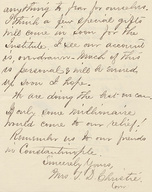 anything to pray for ourselves.
I think a few special gifts
will come in soon for the
Institute. I see our account
is overdrawn. Much of this
is personal & will be covered
soon I hope.
We are doing the best we can
if only some millionaire
would come to our relief!
Remember us to our friends
in Constantinople.
Sincerely Yours,
Mrs. T. D. Christie